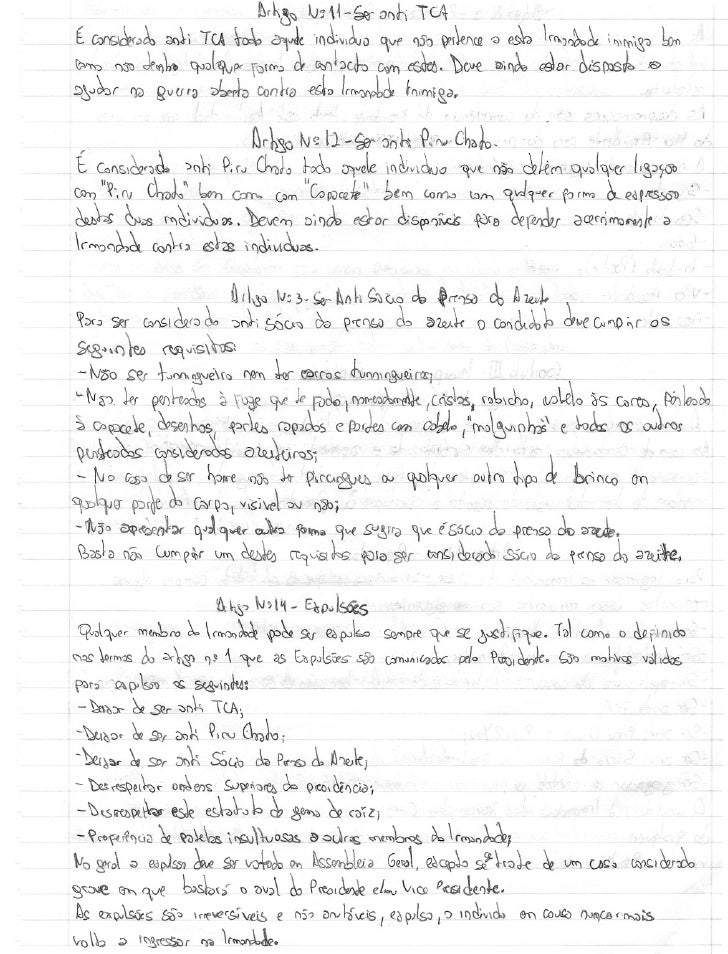 Artigo Nº11-Ser anti TCA
É considerado anti TCA todo aquele individuo que não pertence a esta Irmandade inimiga bem
como nao tenha qualquer forma de contacto com estes. Deve ainda estar disposto a
ajudar na guerra aberta contra esta Irmandade Inimiga.
Artigo Nº12-Ser anti Piru Chato.
É considerado anti Piru Chato todo aquele individuo que não detém qualquer ligação
com "Piru Chato" bem como com "Capacete" bem como com qualquer forma de expressão
destes dois individuos. Devem ainda estar disponíveis para defender acerrimamente a
Irmandade contra estes individuos.
Artigo Nº3-Ser Anti Sócio da Prensa do Azeite
Para ser considerado anti sócio da prensa do azeite o candidato deve cumprir os
seguintes requisitos:
-Não ser tunningueiro nem ter carros tunningueiros;
-Não ter penteados à foge que te fodo, nomeadamente, cristas, rabicho, cabelo às cores, penteado
à capacete, desenhos, partes rapadas e partes com cabelo, "molguinhas" e todos os outros
penteados considerados azeiteiros;
- No caso de ser home não ter pircingues ou qualquer outro tipo de brinco em
qualquer parte do corpo, visível ou não;
-Não apresentar qualquer outra forma que sugira que é sócio da prensa do azeite.
Basta não cumprir um destes requisitos para ser considerado sócio da prensa do azeite.
Artigo Nº14- Expulsões
Qualquer membro da Irmandade pode ser expulso sempre que se justifique. Tal como o definido
nos termos do artigo nº 1 que as Expulsões são comunicadas pelo Presidente. São motivos válidos
para expulsão os seguintes:
- Deixar de ser anti TCA;
-Deixar de ser anti Piru Chato;
-Deixar de ser anti Sócio da Prensa do Azeite;
- Desrespeitar ordens superiores da presidência;
-Desrespeitar este estatuto do gema de caiz;
-Proferência de palavras insultuosas a outros membros da Irmandade;
No geral a expulsão deve ser votada em Assembleia Geral, excepto se trate de um caso considerado
grave em que bastará o aval do Presidente e/ou Vice Presidente.
As expulsões são irreversíveis e não anuláveis, expulso, o individuo em causa nunca mais
volta a ingressar na Irmandade.